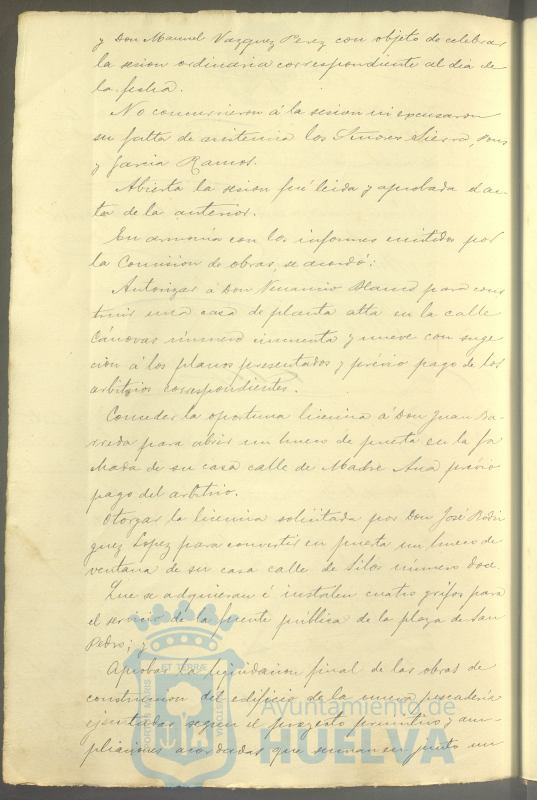 y Don Manuel Vazquez Perez con objeto de celebrar
la sesion ordinaria correspondiente al dia de
la fecha.
No concurrieron á la sesion ni excusaron
su falta de asistencia los Señores Sierra, Pons
y Garcia Ramos.
Abierta la sesion fué leida y aprobada el ac-
ta de la anterior.
En armonia con los informes emitidos por
la Comision de obras, se acordó:
Autorizar á Don Venancio Blanco para cons
truir una casa de planta alta en la calle
Cánovas número cincuenta y nueve con suge
cion á los planos presentados y prévio pago de los
arbitrios correspondientes.
Conceder la oportuna licencia á Don Juan Ba-
rreda para abrir un hueco de puerta en la fa
chada de su casa calle de Madre Ana prévio
pago del arbitrio.
Otorgar la licencia solicitada por Don José Rodri
guez Lopez para convertir en puerta un hueco de
ventana de su casa calle de Silos número doce.
Que se adquieran é instalen cuatro grifos para
el servicio de la fuente pública de la plaza de San
Pedro; y
Aprobar la liquidacion final de las obras de
construccion del edificio de la nueva pescaderia
ejecutadas segun el proyecto primitivo y am-
pliaciones acordadas que suman en junto un
PORTUS MARIS ET TERRÆ CUSTODIA
Ayuntamiento de
HUELVA